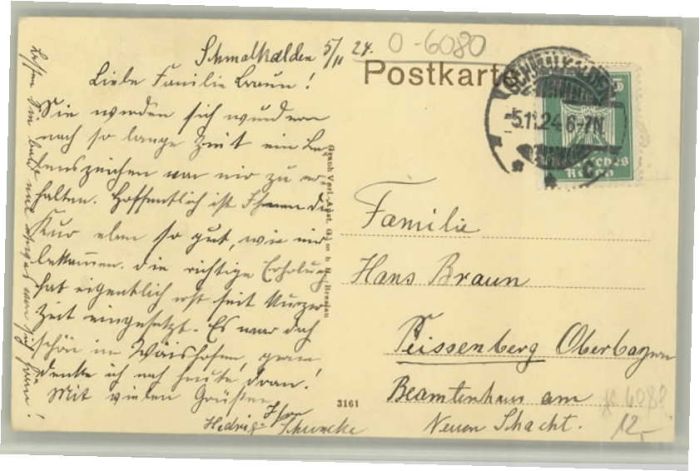 Schmalkalden 5/11 24.
0-6080
Postkarte
Liebe Familie Braun!
SCHMALKALDEN
-5.11.24.6-7N
5
Deutsches
Reich
Sie werden sich wundern
nach so lange Zeit ein Le-
benszeichen von mir zu er-
halten. Hoffentlich ist Ihnen die
Kur eben so gut, wie mir
bekommen. Die richtige Erholung
hat eigentlich erst seit kurzer
Zeit eingesetzt. Es war doch
schön in Wörishofen, gern
denke ich noch heute dran!
Mit vielen Grüßen
Ihre
Hedwig Schuncke
Familie
Hans Braun
Peissenberg Oberbayern
Beamtenhaus am
Neuen Schacht.
3161
6080
12,-